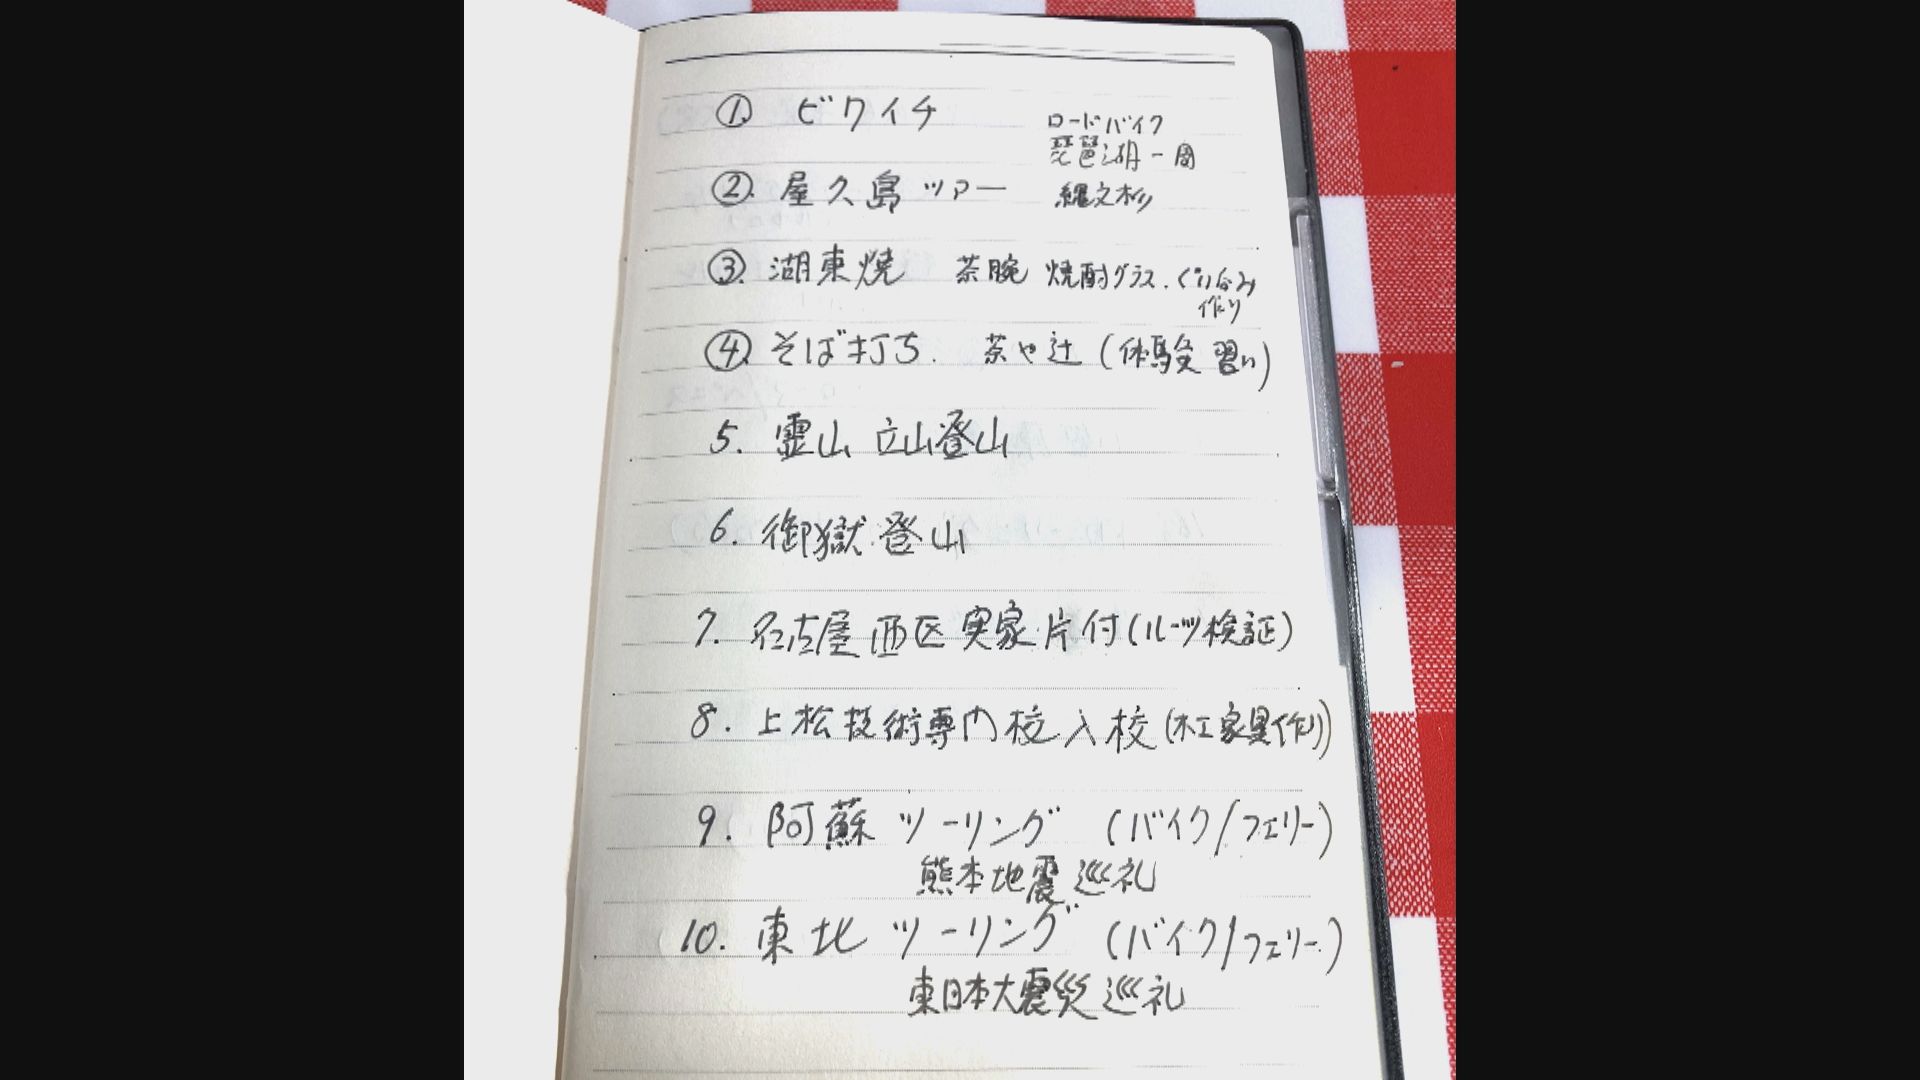 ① ビワイチ ロードバイク
琵琶湖一周
② 屋久島ツアー 縄文杉
③ 湖東焼 茶腕 焼酎グラス.ぐい呑み
作り
④ そば打ち. 茶や辻(体験 習い)
5. 霊山 立山登山
6. 御嶽登山
7. 名古屋西区実家片付(ルーツ検証)
8. 上松技術専門校入校(木工家具作り)
9. 阿蘇ツーリング (バイク/フェリー)
熊本地震巡礼
10. 東北ツーリング (バイク/フェリー)
東日本大震災巡礼